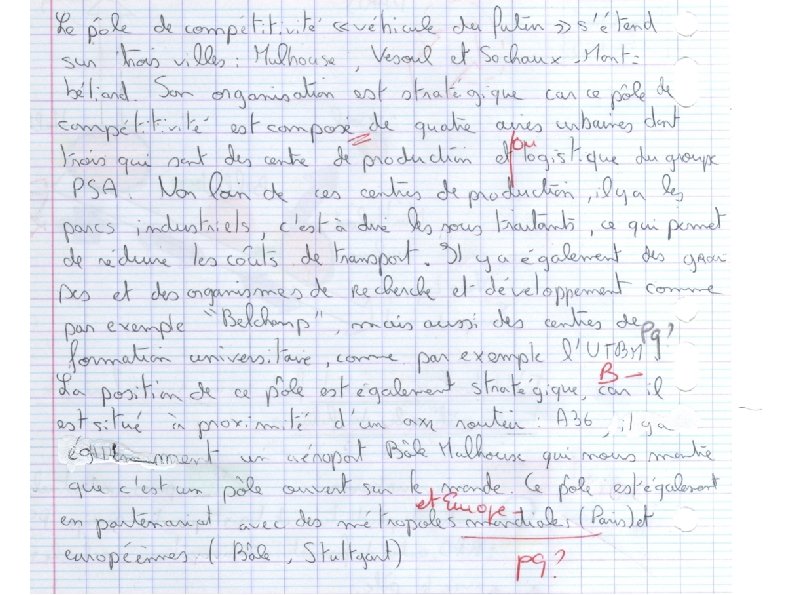 Le pôle de compétitivité « véhicule du futur » s'étend
sur trois villes : Mulhouse, Vesoul et Sochaux-Mont-
béliard. Son organisation est stratégique car ce pôle de
compétitivité est composé de quatre aires urbaines dont
ou
trois qui sont des centre de production et logistique du groupe
PSA. Non loin de ces centres de production, il y a les
parcs industriels, c'est à dire les sous traitants, ce qui permet
de réduire les coûts de transport. Il y a également des grou
pes et des organismes de recherche et développement comme
par exemple "Belchamp", mais aussi des centres de
pq?
formation universitaire, comme par exemple l'UTBM
B-
La position de ce pôle est également stratégique, car il
est situé à proximité d'un axe routier : A36, il y a
également un aéroport Bâle Mulhouse qui nous montre
que c'est un pôle ouvert sur le monde. Ce pôle est également
et Europe-
en partenariat avec des métropoles mondiales (Paris) et
européennes. (Bâle, Stuttgart)
pq?